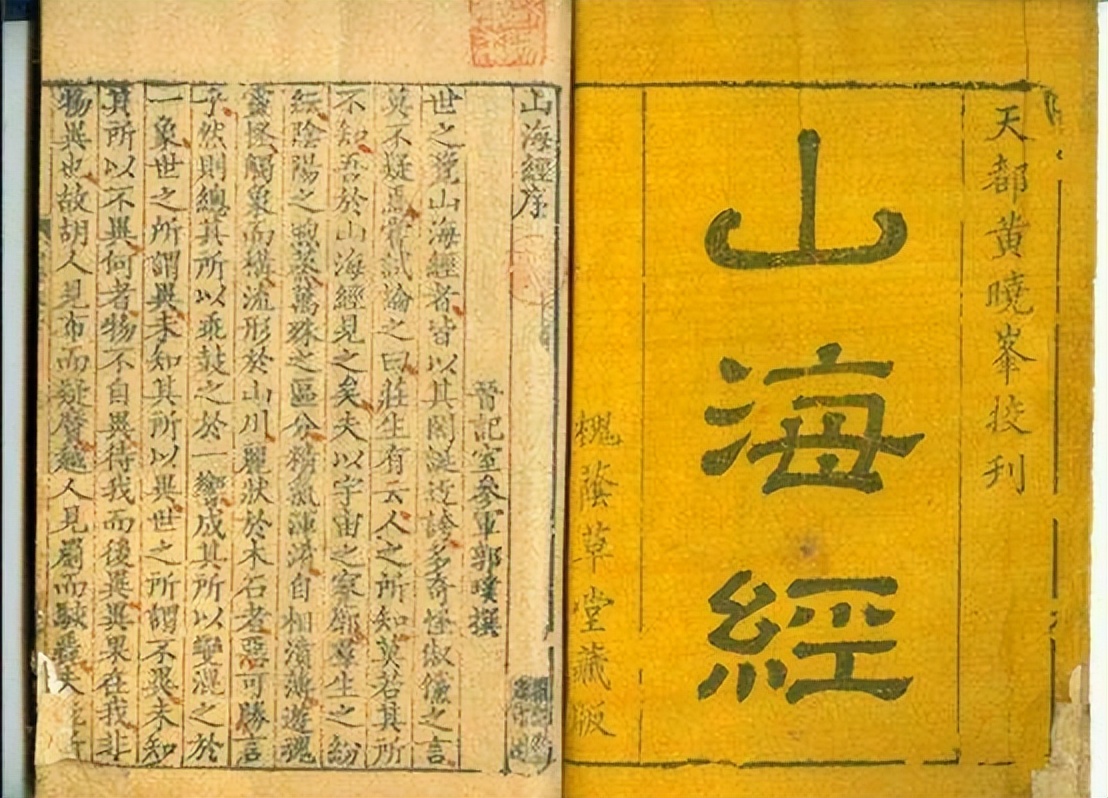 天都黃曉峯挍刊
山海經
槐蔭草堂藏版
山海經序
晉記室參軍郭璞撰
世之覽山海經者皆以其閎誕迂誇多奇怪俶儻之言
莫不疑焉嘗試論之曰莊生有云人之所知莫若其所
不知吾於山海經見之矣夫以宇宙之寥廓羣生之紛
紜陰陽之煦蒸萬殊之區分精氣渾淆自相濆薄遊魂
靈怪觸象而搆流形於山川麗狀於木石者惡可勝言
乎然則總其所以乖鼓之於一響成其所以變混之於
一象世之所謂異未知其所以異世之所謂不異未知
其所以不異何者物不自異待我而後異異果在我非
物異也故胡人見布而疑黂越人見罽而駭毳夫